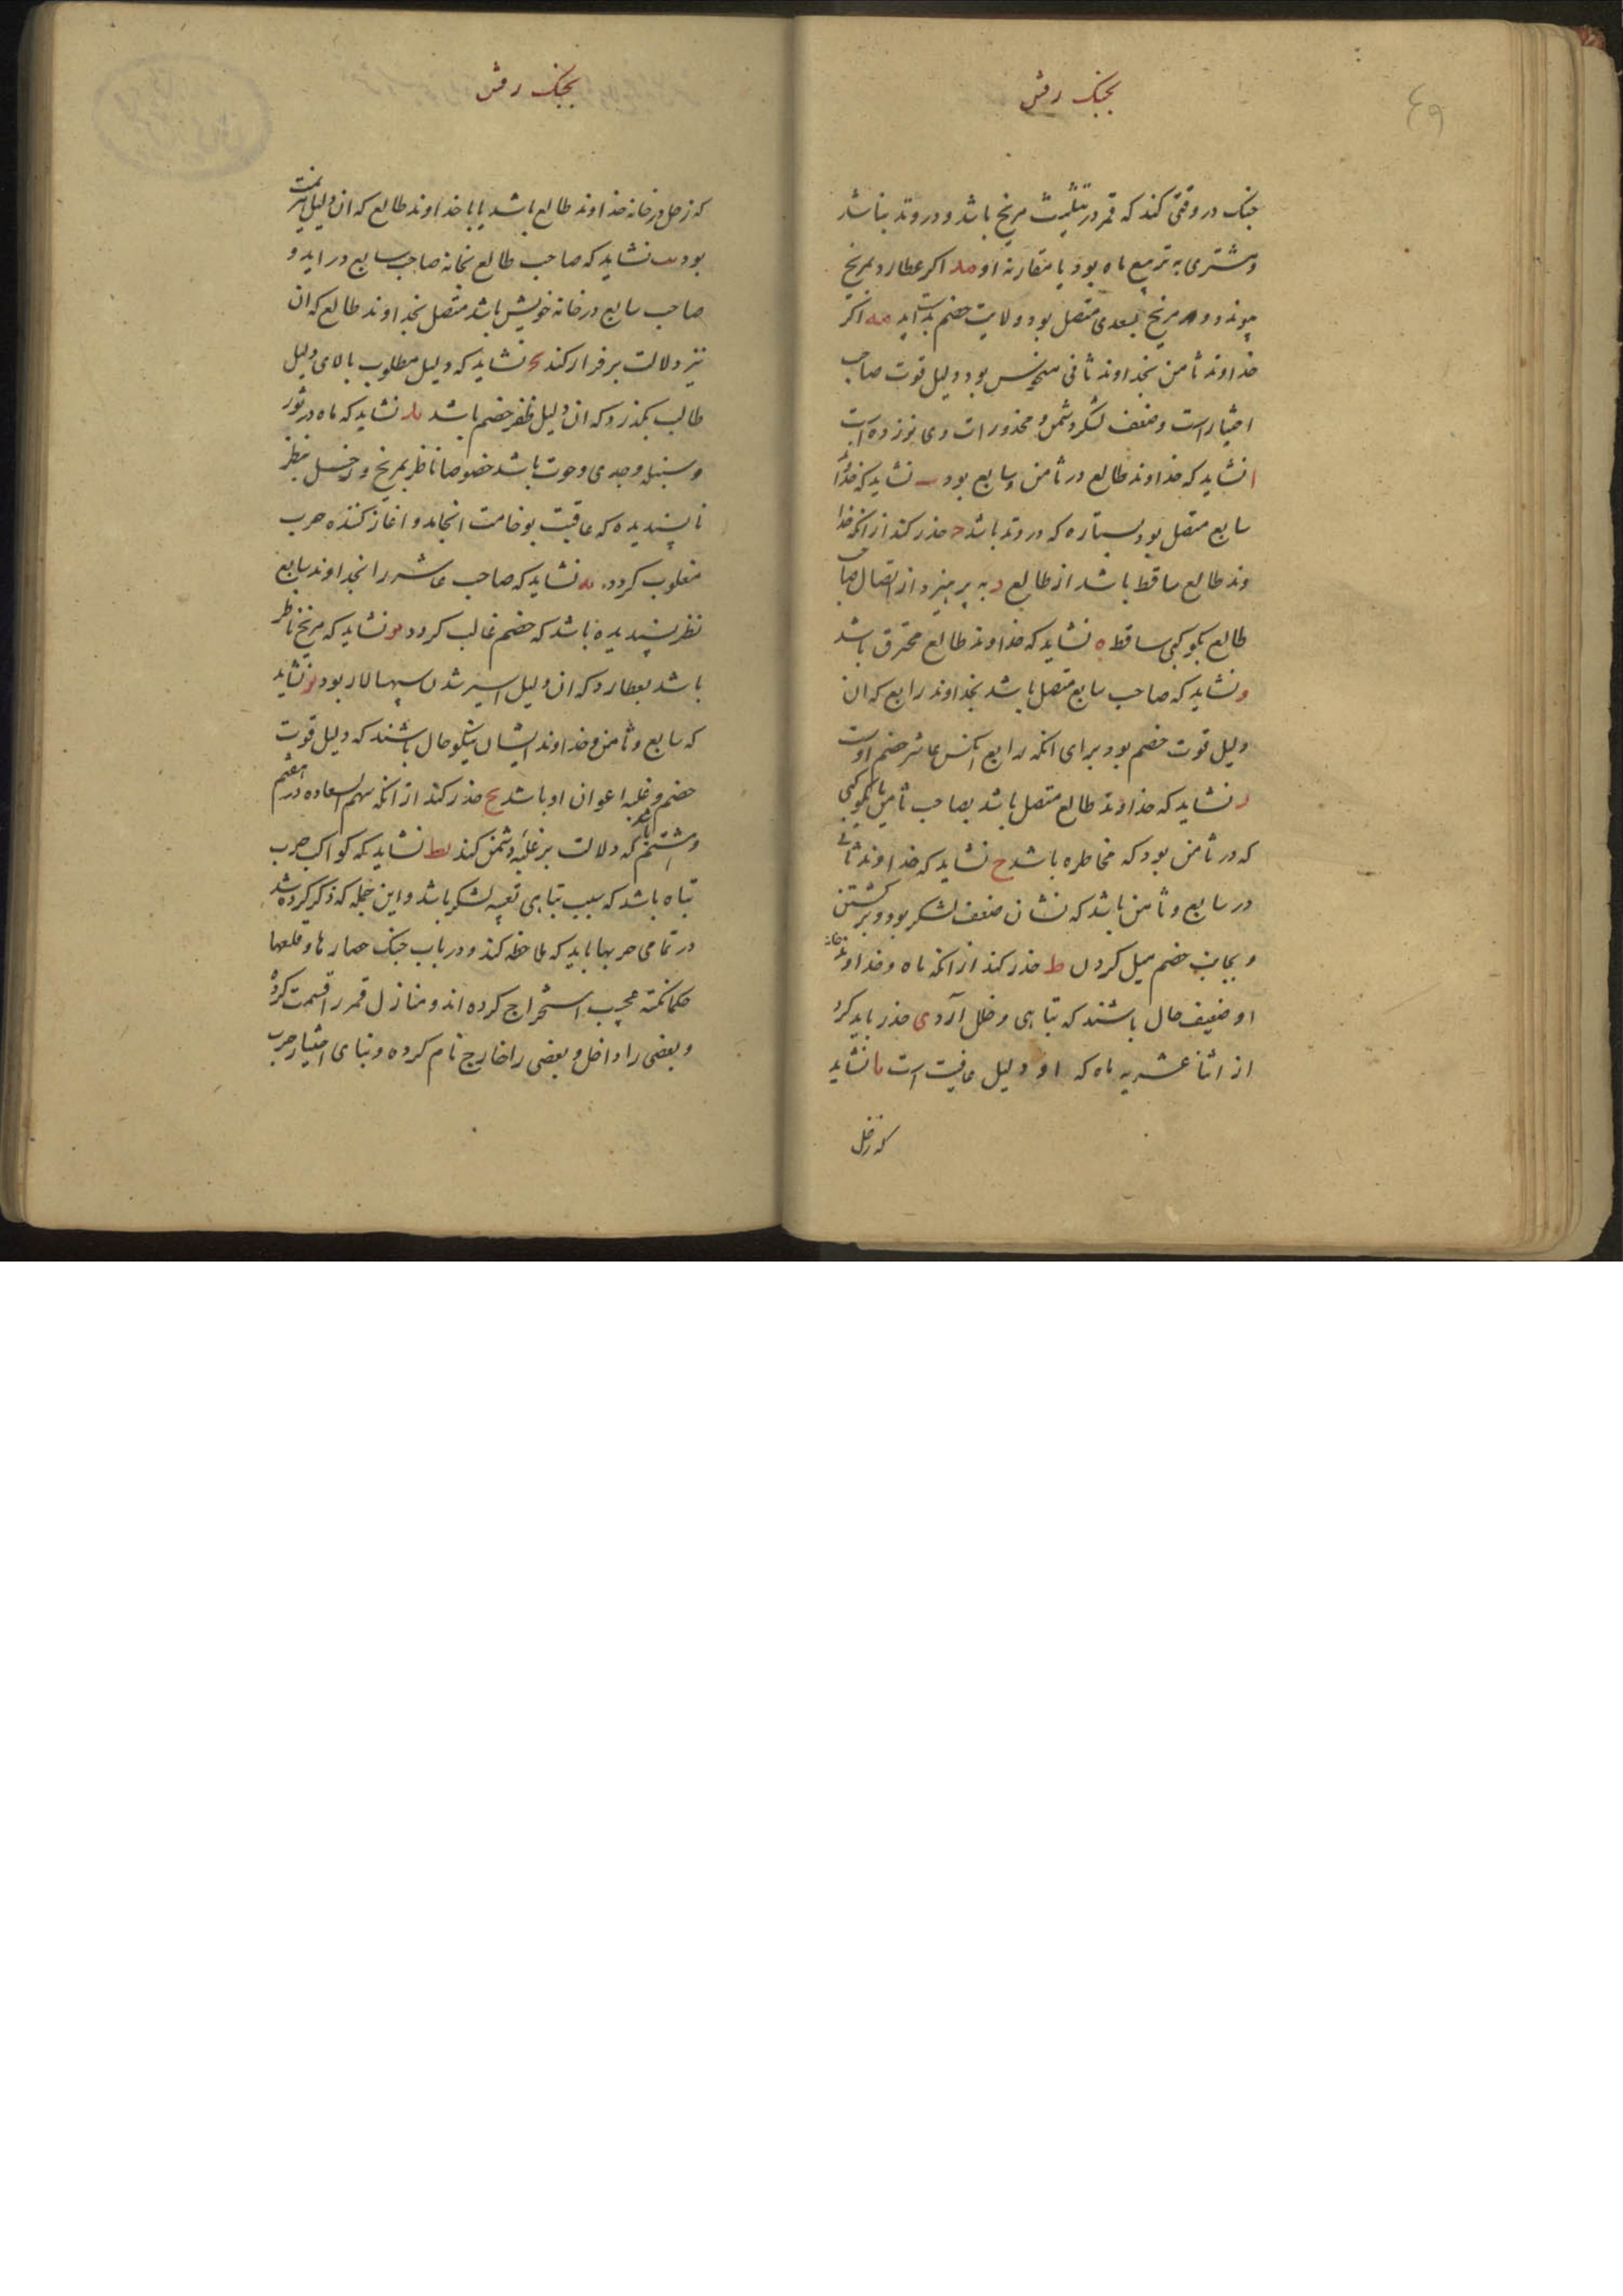 بجنک رفتن
٤٩
جنک در وقتی کند که قمر در تثلیث مریخ باشد و در وتد بناشد
و مشتری به تربیع ماه بود یا مقارنه او مد اکر عطارد بمریخ
پیوندد و مریخ بسعدی متصل بود ولایت خصم بدست اید مه اکر
خداوند ثامن بخداوند ثانی منحوس بود دلیل قوت صاحب
اختیار است و ضعف لشکر دشمن و محذورات وی نوزده است
ا نشاید که خداوند طالع در ثامن و سابع بود ب نشاید که خداوند
سابع متصل بود بستاره که در وتد باشد ج حذر کند از انکه خدا
وند طالع ساقط باشد از طالع د به پرهیزد از اتصال صاحب
طالع بکوکبی ساقط ه نشاید که خداوند طالع محترق باشد
و نشاید که صاحب سابع متصل باشد بخداوند رابع که ان
دلیل قوت خصم بود برای انکه رابع انکس عاشر خصم اوست
ز نشاید که خداوند طالع متصل باشد بصاحب ثامن یا بکوکبی
که در ثامن بود که مخاطره باشد ح نشاید که خداوند ثانی
در سابع و ثامن باشد که نشان ضعف لشکر بود و برکشتن
و بجانب خصم میل کردن ط حذر کند از انکه ماه و خداوند خانه
او ضعیف حال باشند که تباهی و خلل آرد ی حذر باید کرد
از اثنا عشریه ماه که او دلیل عاقبت است یا نشاید
که زحل
بجنک رفتن
که زحل در خانه خداوند طالع باشد یا با خداوند طالع که ان دلیل هزیمت
بود یب نشاید که صاحب طالع بخانه صاحب سابع در اید و
صاحب سابع در خانه خویش باشد متصل بخداوند طالع که ان
نیز دلالت بر فرار کند یج نشاید که دلیل مطلوب بالای دلیل
طالب بکذرد که ان دلیل ظفر خصم باشد ید نشاید که ماه در ثور
و سنبله و جدی و حوت باشد خصوصا ناظر بمریخ و زحل بنظر
ناپسندیده که عاقبت بوخامت انجامد و اغاز کننده حرب
مغلوب کردد. یه نشاید که صاحب عاشر را بخداوند سابع
نظر پسندیده باشد که خصم غالب کردد یو نشاید که مریخ ناظر
باشد بعطارد که ان دلیل اسیر شدن سپهسالار بود یز نشاید
که سابع و ثامن و خداوند ایشان نیکو حال باشند که دلیل قوت
خصم و غلبه اعوان او باشد یح حذر کند از انکه سهم السعاده در هفتم
و هشتم باشد که دلالت بر غلبه دشمن کند یط نشاید که کواکب حرب
تباه باشد که سبب تباهی تعبیه لشکر باشد و این جمله که ذکر کرده شد
در تمامی حربها باید که ملاحظه کند و در باب جنک حصارها و قلعها
حکما نکته عجیب استخراج کرده اند و منازل قمر را قسمت کرده
و بعضی را داخل و بعضی را خارج نام کرده و بنای اختیار حرب